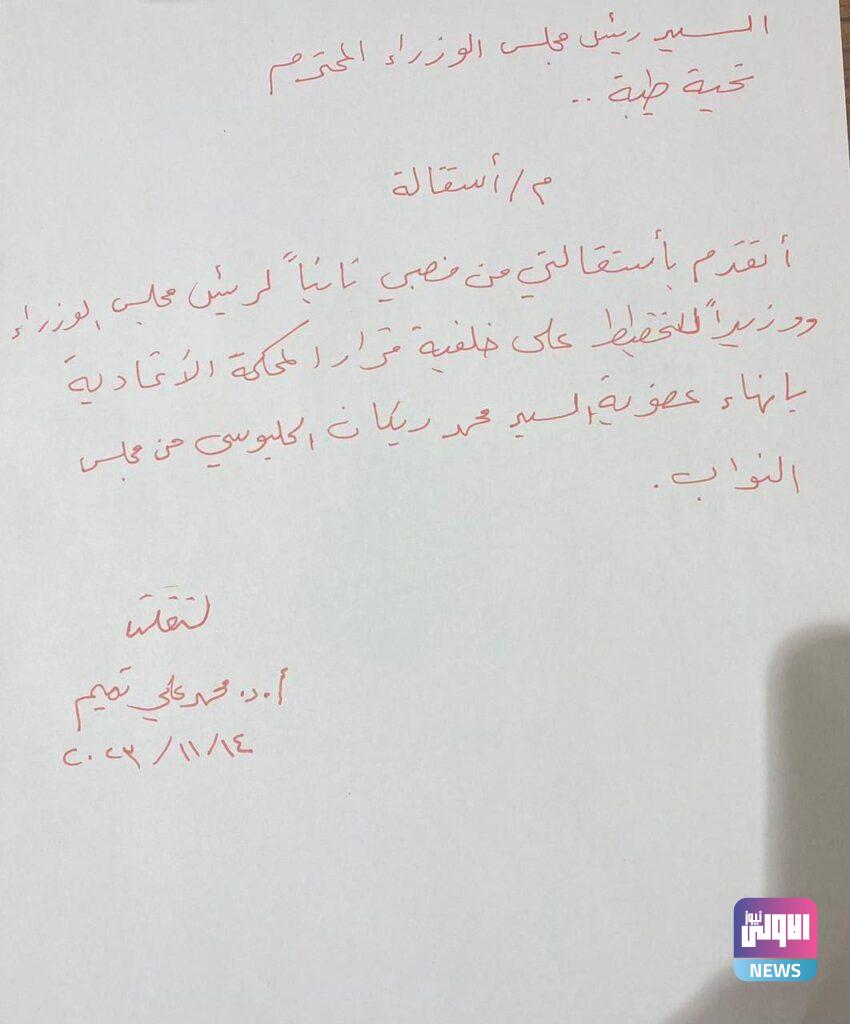 السيد رئيس مجلس الوزراء المحترم
تحية طيبة ..
م/ أستقالة
أتقدم بأستقالتي من منصبي نائباً لرئيس مجلس الوزراء
ووزيراً للتخطيط على خلفية قرار المحكمة الأتحادية
بانهاء عضوية السيد محمد ريكان الحلبوسي من مجلس
النواب .
أ.د. محمد علي تميم
٢٠٢٣/١١/١٤
الاولى نيوز
NEWS